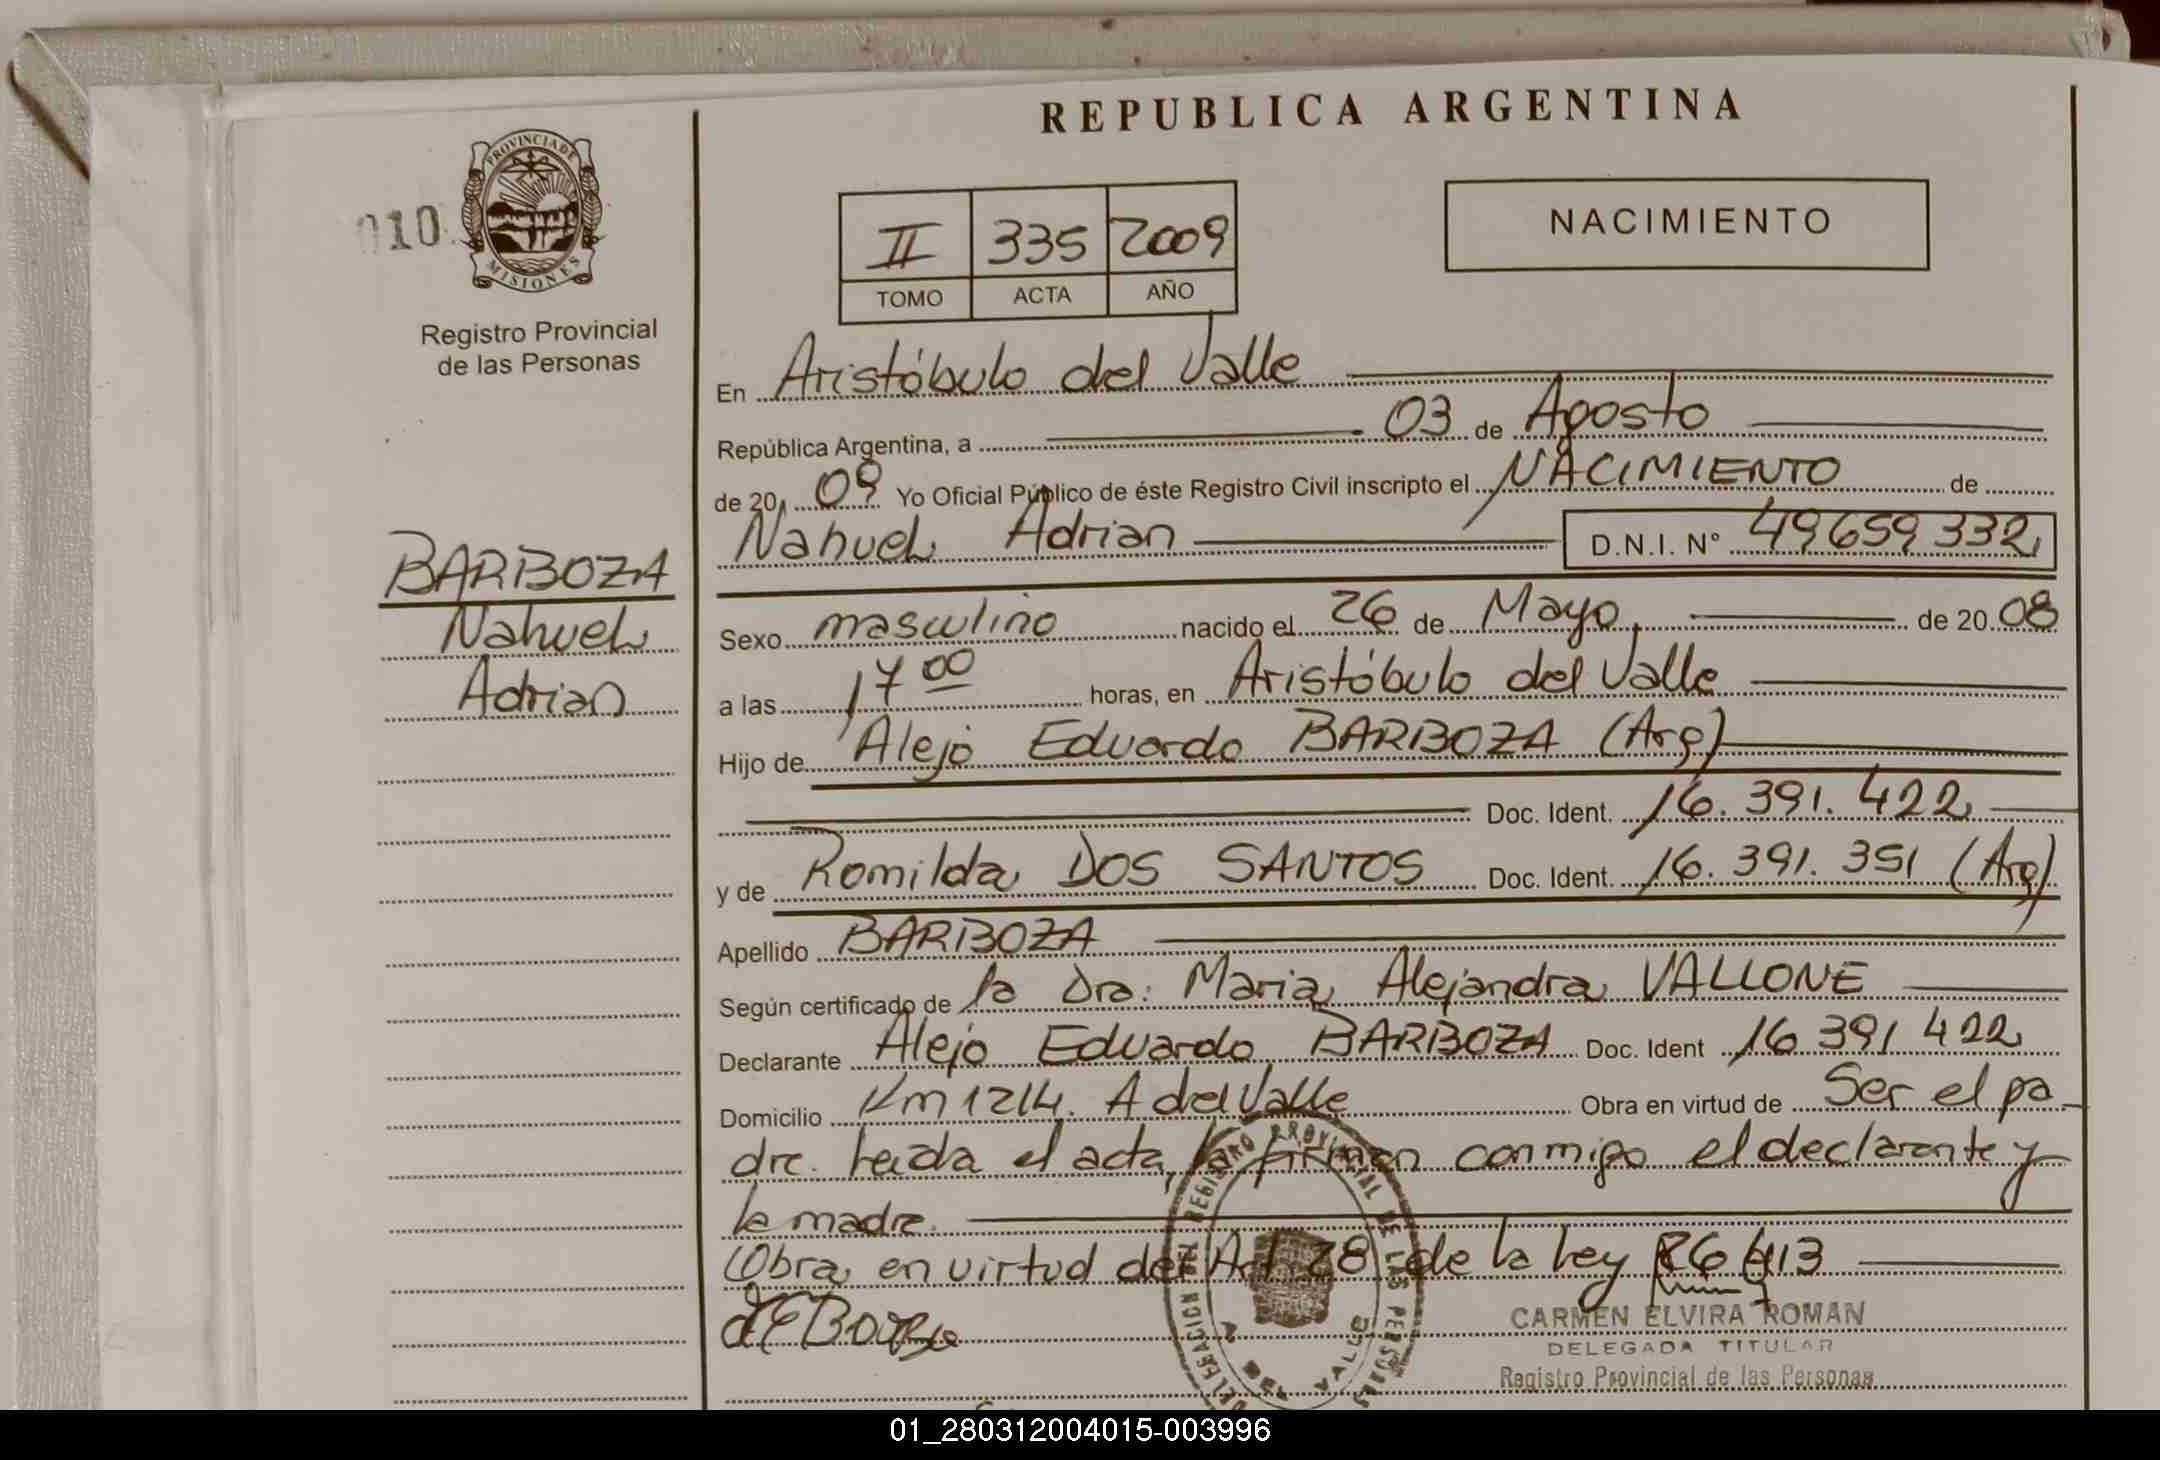 REPUBLICA ARGENTINA
010
PROVINCIA DE
MISIONES
Registro Provincial
de las Personas
II 335 2009
TOMO ACTA AÑO
NACIMIENTO
BARBOZA
Nahuel
Adrian
En Aristóbulo del Valle
República Argentina, a 03 de Agosto
de 20 09 Yo Oficial Público de éste Registro Civil inscripto el NACIMIENTO de
Nahuel Adrian D.N.I. N° 49659332
Sexo masculino nacido el 26 de Mayo, de 20 08
a las 17 00 horas, en Aristóbulo del Valle
Hijo de Alejo Eduardo BARBOZA (Arg)
Doc. Ident. 16.391.422
y de Romilda DOS SANTOS Doc. Ident. 16.391.351 (Arg)
Apellido BARBOZA
Según certificado de la Dra: Maria Alejandra VALLONE
Declarante Alejo Eduardo BARBOZA Doc. Ident 16 391 422
Domicilio Km 1214. A del Valle Obra en virtud de Ser el pa
dre. Leida el acta, la firman conmigo el declarante y
la madre.
Obra en virtud del Art 28 de la Ley 26 413
CARMEN ELVIRA ROMAN
DELEGADA TITULAR
Registro Provincial de las Personas
DELEGACION DEL REGISTRO PROVINCIAL DE LAS PERSONAS
01_280312004015-003996